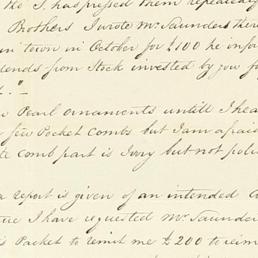 the S. has pressed them repeatedly
Brothers I wrote Mr. Saunders there
in town in October for £100 he infor
dends from Stock invested by you f
Pearl ornaments untill I hea
few Pocket Combs but I am afrai
te comb part is Ivry but not pol
a report is given of an intended C
I have requested Mr. Saunder
is Packet to remit me £200 to reim